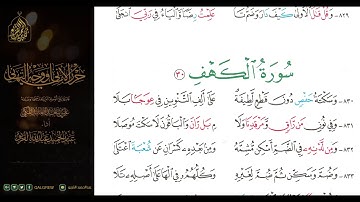 ٨٢٩- وَقُلْ قَالَ الْأُولَى كَيْفَ دَارَ وَضُمَّ تَا عَلِمْتَ رِضًا وَالْيَاءُ فِي رَبِّيَ انْجَلَى
سُورَةُ الْكَهْفِ
(٣٠)
٨٣٠- وَسَكْتَةُ حَفْصٍ دُونَ قَطْعٍ لَطِيفَةٌ عَلَى أَلِفِ التَّنْوِينِ فِي عِوَجًا بَلَا
٨٣١- وَفِي نُونِ مَنْ رَاقٍ وَمَرْقَدِنَا وَلَا مِ بَلْ رَانَ وَالْبَاقُونَ لَا سَكْتَ مُوصَلَا
٨٣٢- وَمِنْ لَدْنِهِ فِي الضَّمِّ أَسْكِنْ مُشِمَّهُ وَمِنْ بَعْدِهِ كَسْرَانِ عَنْ شُعْبَةَ اعْتَلَى
٨٣٣- وَضُمَّ وَسَكِّنْ ثُمَّ ضُمَّ لِغَيْرِهِ وَكُلُّهُمُ فِي الْهَا عَلَى أَصْلِهِ تَلَا
حرز الأماني ووجه التهاني